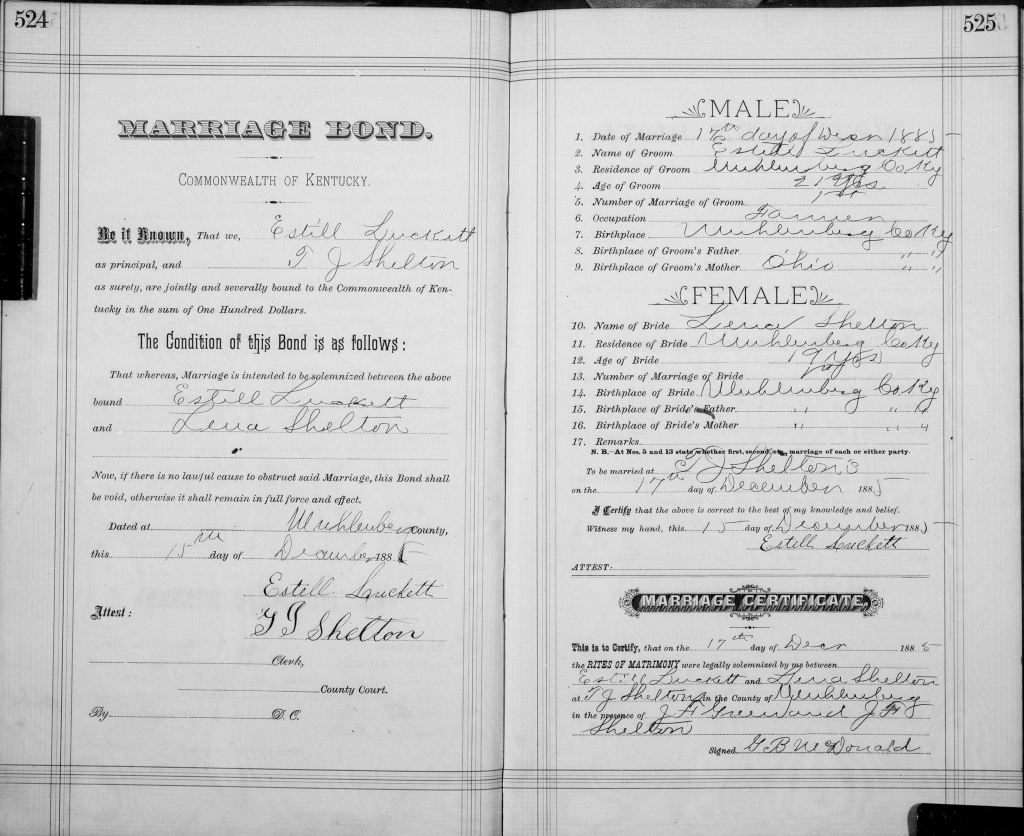 524
MARRIAGE BOND.
COMMONWEALTH OF KENTUCKY.
Be it Known, That we, Estill Luckett
as principal, and T J Shelton
as surety, are jointly and severally bound to the Commonwealth of Ken-
tucky in the sum of One Hundred Dollars.
The Condition of this Bond is as follows:
That whereas, Marriage is intended to be solemnized between the above
bound Estill Luckett
and Lena Shelton
Now, if there is no lawful cause to obstruct said Marriage, this Bond shall
be void, otherwise it shall remain in full force and effect.
Dated at Muhlenberg County,
this 15th day of December 1885
Estell Luckett
Attest: T J Shelton
Clerk,
County Court.
By D. C.
525
MALE
1. Date of Marriage 17th day of Decr 1885
2. Name of Groom Estill Luckett
3. Residence of Groom Muhlenberg Co Ky
4. Age of Groom 21 Yrs
5. Number of Marriage of Groom 1st
6. Occupation Farmer
7. Birthplace Muhlenberg Co Ky
8. Birthplace of Groom's Father " " "
9. Birthplace of Groom's Mother Ohio " "
FEMALE
10. Name of Bride Lena Shelton
11. Residence of Bride Muhlenberg Co Ky
12. Age of Bride 19 Yrs
13. Number of Marriage of Bride 1st
14. Birthplace of Bride Muhlenberg Co Ky
15. Birthplace of Bride's Father " " "
16. Birthplace of Bride's Mother " " "
17. Remarks
N. B.—At Nos. 5 and 13 state whether first, second, etc., marriage of each or either party.
To be married at T J Shelton's
on the 17th day of December 1885
I Certify that the above is correct to the best of my knowledge and belief.
Witness my hand, this 15 day of December 1885
Estell Luckett
ATTEST:
MARRIAGE CERTIFICATE.
This is to Certify, that on the 17th day of Decr 1885
the RITES OF MATRIMONY were legally solemnized by me between
Estill Luckett and Lena Shelton
at T J Shelton in the County of Muhlenberg
in the presence of J F and J F
Shelton
Signed G B McDonald